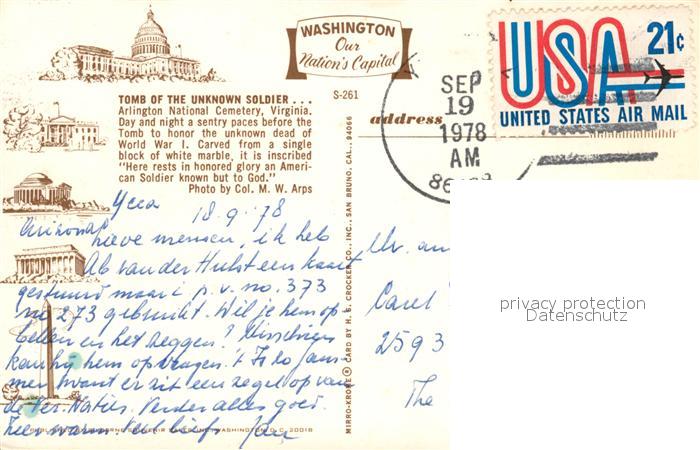 WASHINGTON
Our
Nation's Capital
S-261
TOMB OF THE UNKNOWN SOLDIER . . .
Arlington National Cemetery, Virginia.
Day and night a sentry paces before the
Tomb to honor the unknown dead of
World War I. Carved from a single
block of white marble, it is inscribed
"Here rests in honored glory an Ameri-
can Soldier known but to God."
Photo by Col. M. W. Arps
18.9.78
lieve mensen, ik heb
Ab van der Hulst een kaart
gestuurd maar i.p.v. no. 373
no 273 gebruikt. Wil je hem op
bellen en het zeggen? Misschien
kan hij hem opvragen. 't Is zo jam-
mer want er zit een zegel op van
de Ver. Naties. Verder alles goed.
Zeer warm. Veel liefs
WASHINGTON, D. C. 20018
MIRRO-KROME ® CARD BY H. S. CROCKER CO., INC., SAN BRUNO, CAL., 94066
address
SEP
19
1978
AM
USA 21¢
UNITED STATES AIR MAIL
Carel
2593
The
privacy protection
Datenschutz